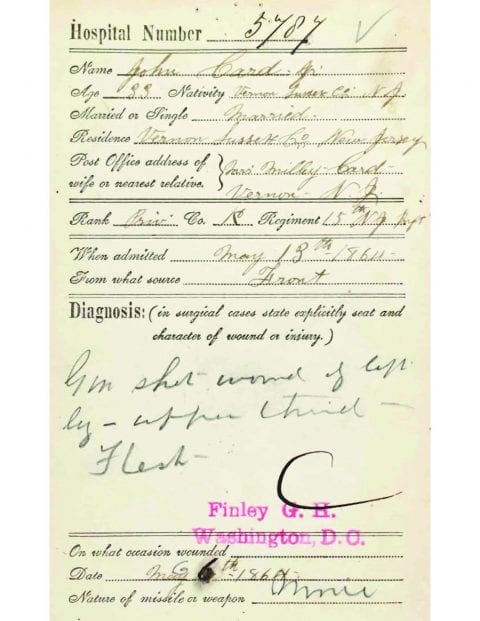 Hospital Number 5787
Name John Card Jr
Age 33 Nativity Vernon Sussex Co. N J
Married or Single Married
Residence Vernon Sussex Co, New Jersey
Post Office address of
wife or nearest relative. } Milley Card
Vernon N J.
Rank Priv Co. K Regiment 15th N J
When admitted May 13th 1864
From what source Front
Diagnosis: (in surgical cases state explicitly seat and
character of wound or injury.)
Gun shot wound of left
leg - upper third -
Flesh -
C
Finley G. H.
Washington, D. C.
On what occasion wounded
Date May 6th 1864
Nature of missile or weapon Minnie